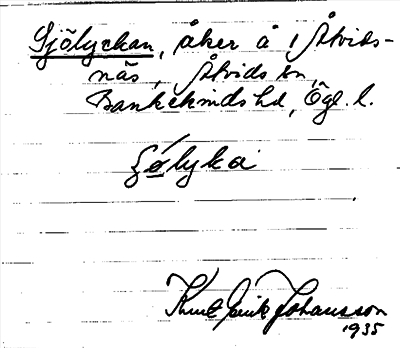 Sjölyckan, åker å 1 Åtvids-
näs, Åtvids sn,
Bankekinds hd, Ögl. l.
ʃö́lyka
Knut Erik Johansson
1935